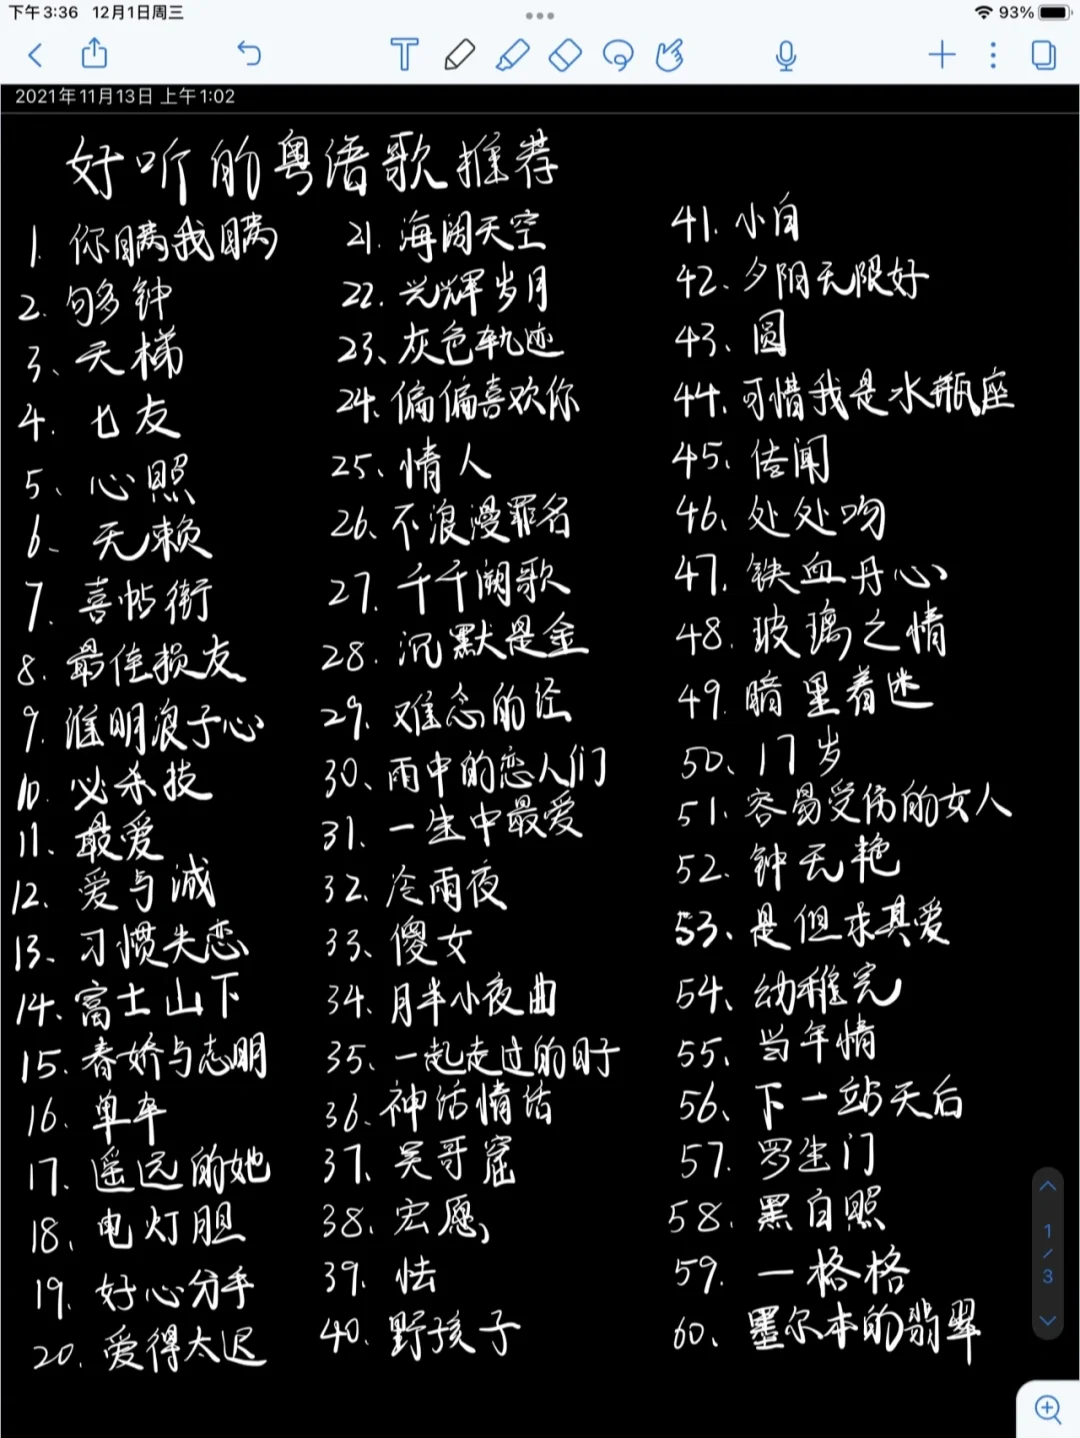 下午3:36 12月1日周三
93%
2021年11月13日 上午1:02
好听的粤语歌推荐
1. 你瞒我瞒
2. 够多钟
3、天梯
4. 七友
5、心照
6. 无赖
7. 喜帖街
8. 最佳损友
9. 谁明浪子心
10. 必杀技
11. 最爱
12. 爱与诚
13、习惯失恋
14、富士山下
15. 春娇与志明
16. 单车
17. 遥远的她
18、电灯胆
19. 好心分手
20. 爱得太迟
21. 海阔天空
22. 光辉岁月
23、灰色轨迹
24、偏偏喜欢你
25、情人
26、不浪漫罪名
27. 千千阙歌
28. 沉默是金
29. 难念的经
30、雨中的恋人们
31. 一生中最爱
32. 冷雨夜
33、傻女
34. 月半小夜曲
35、一起走过的日子
36、神话情话
37、吴哥窟
38、宏愿,
39、怯
40. 野孩子
41. 小白
42、夕阳无限好
43、圆
44、可惜我是水瓶座
45、传闻
46、处处吻
47. 铁血丹心
48. 玻璃之情
49. 暗里着迷
50、17岁
51. 容易受伤的女人
52. 钟无艳
53、是但求其爱
54、幼稚完
55、当年情
56、下一站天后
57. 罗生门
58. 黑白照
59. 一格格
60、墨尔本的翡翠
1
/
3